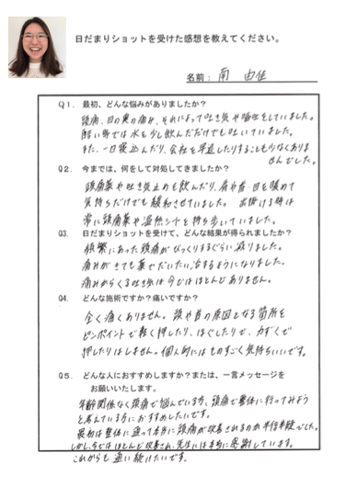 日だまりショットを受けた感想を教えてください。
名前：南
Q1．最初、どんな悩みがありましたか？
頭痛、目の奥の痛み、それによって吐き気や嘔吐をしていました。
酷い時では水を少し飲んだだけでも吐いていました。
また、一日寝込んだり、会社を早退したりすることも少なくありま
せんでした。
Q2．今までは、何をして対処してきましたか？
頭痛薬や吐き気止めを飲んだり、肩や首、目を温めて
気持ちだけでも緩和させていました。出掛ける時は
常に頭痛薬や温熱シートを持ち歩いていました。
Q3．日だまりショットを受けて、どんな結果が得られましたか？
頻繁にあった頭痛がびっくりするぐらい減りました。
痛みがきても薬でだいたい治るようになりました。
痛みからくる吐き気は今ではほとんどありません。
Q4．どんな施術ですか？痛いですか？
全く痛くありません。頭や首の原因となる箇所を
ピンポイントで軽く押したり、ほぐしたりで、力ずくで
押したりはしません。個人的にはものすごく気持ちいいです。
Q5．どんな人におすすめしますか？または、一言メッセージを
お願いいたします。
年齢関係なく頭痛で悩んでいる方、頭痛で整体に行ってみよう
と考えている方におすすめしたいです。
最初は整体に通って本当に頭痛が改善されるのか半信半疑でした。
しかし今ではほとんど改善され、先生には本当に感謝しています。
これからも通い続けたいです。